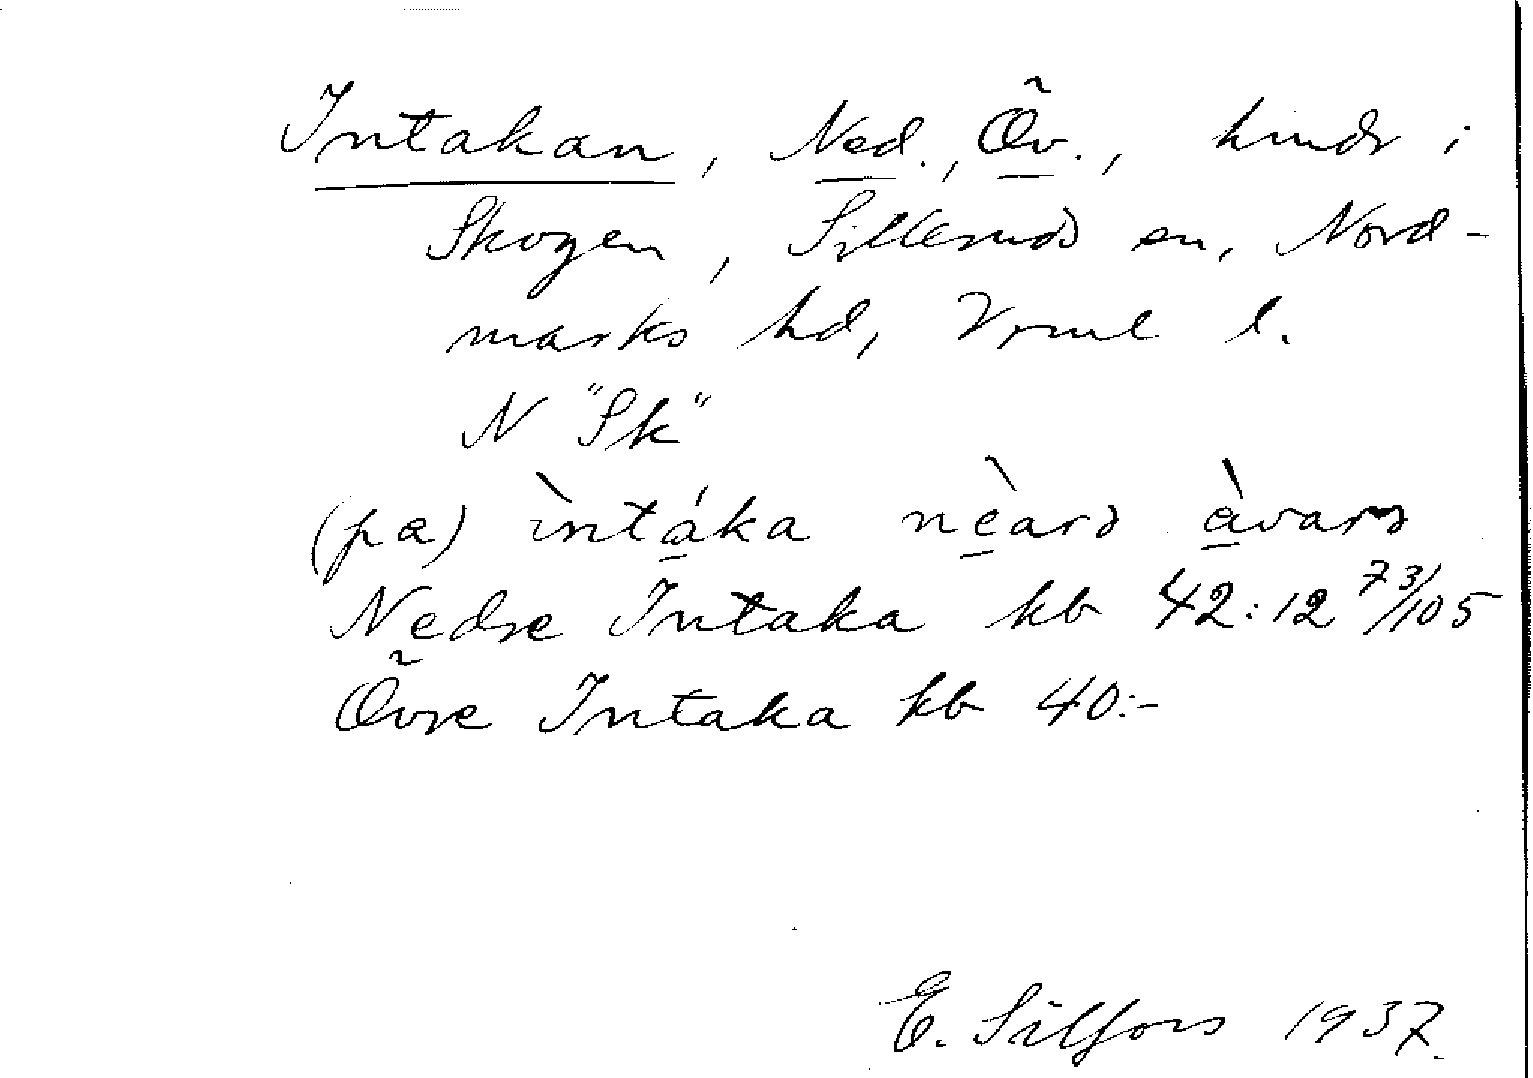 Intakan, Ned., Öv., hmdr i
Skogen, Silleruds sn, Nord-
marks hd, Vrml l.
N "Sk"
(pa) ìntáka nèarə àvarə
Nedre Intaka kb 42:12 73/105
Övre Intaka kb 40:-
E. Silfors 1937.